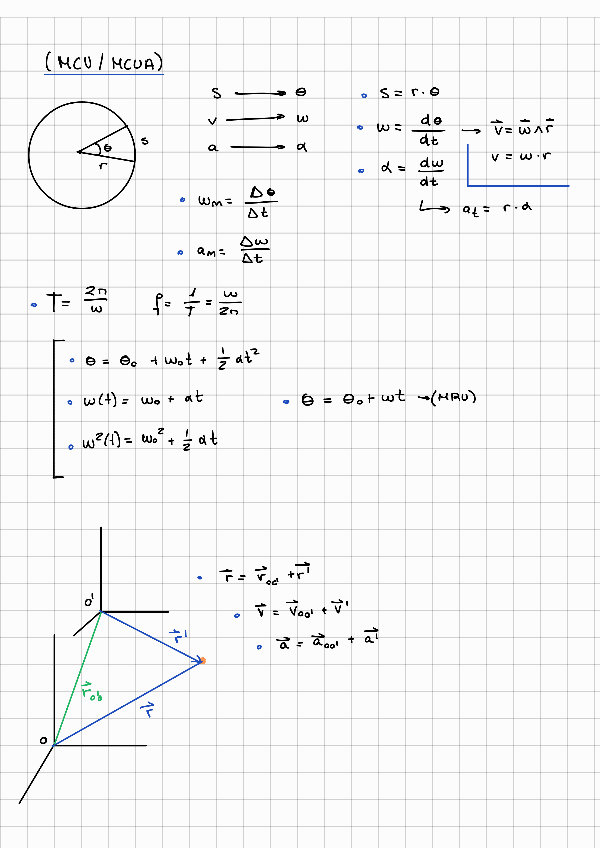 (MCU / MCUA)
S → θ
v → w
a → α
• S = r · θ
• w = dθ/dt → v⃗ = w⃗ ∧ r⃗
v = w · r
• α = dw/dt
↳ a_t = r · α
θ
s
r
• w_M = Δθ/Δt
• a_M = Δw/Δt
• T = 2π/w f = 1/T = w/2π
• θ = θ₀ + w₀t + 1/2 αt²
• w(t) = w₀ + αt
• w²(t) = w₀² + 1/2 αt
• θ = θ₀ + wt → (MRU)
O'
r⃗'
r⃗_ob
r⃗
O
• r⃗ = r⃗_oo' + r⃗'
• v⃗ = v⃗_oo' + v⃗'
• a⃗ = a⃗_oo' + a⃗'